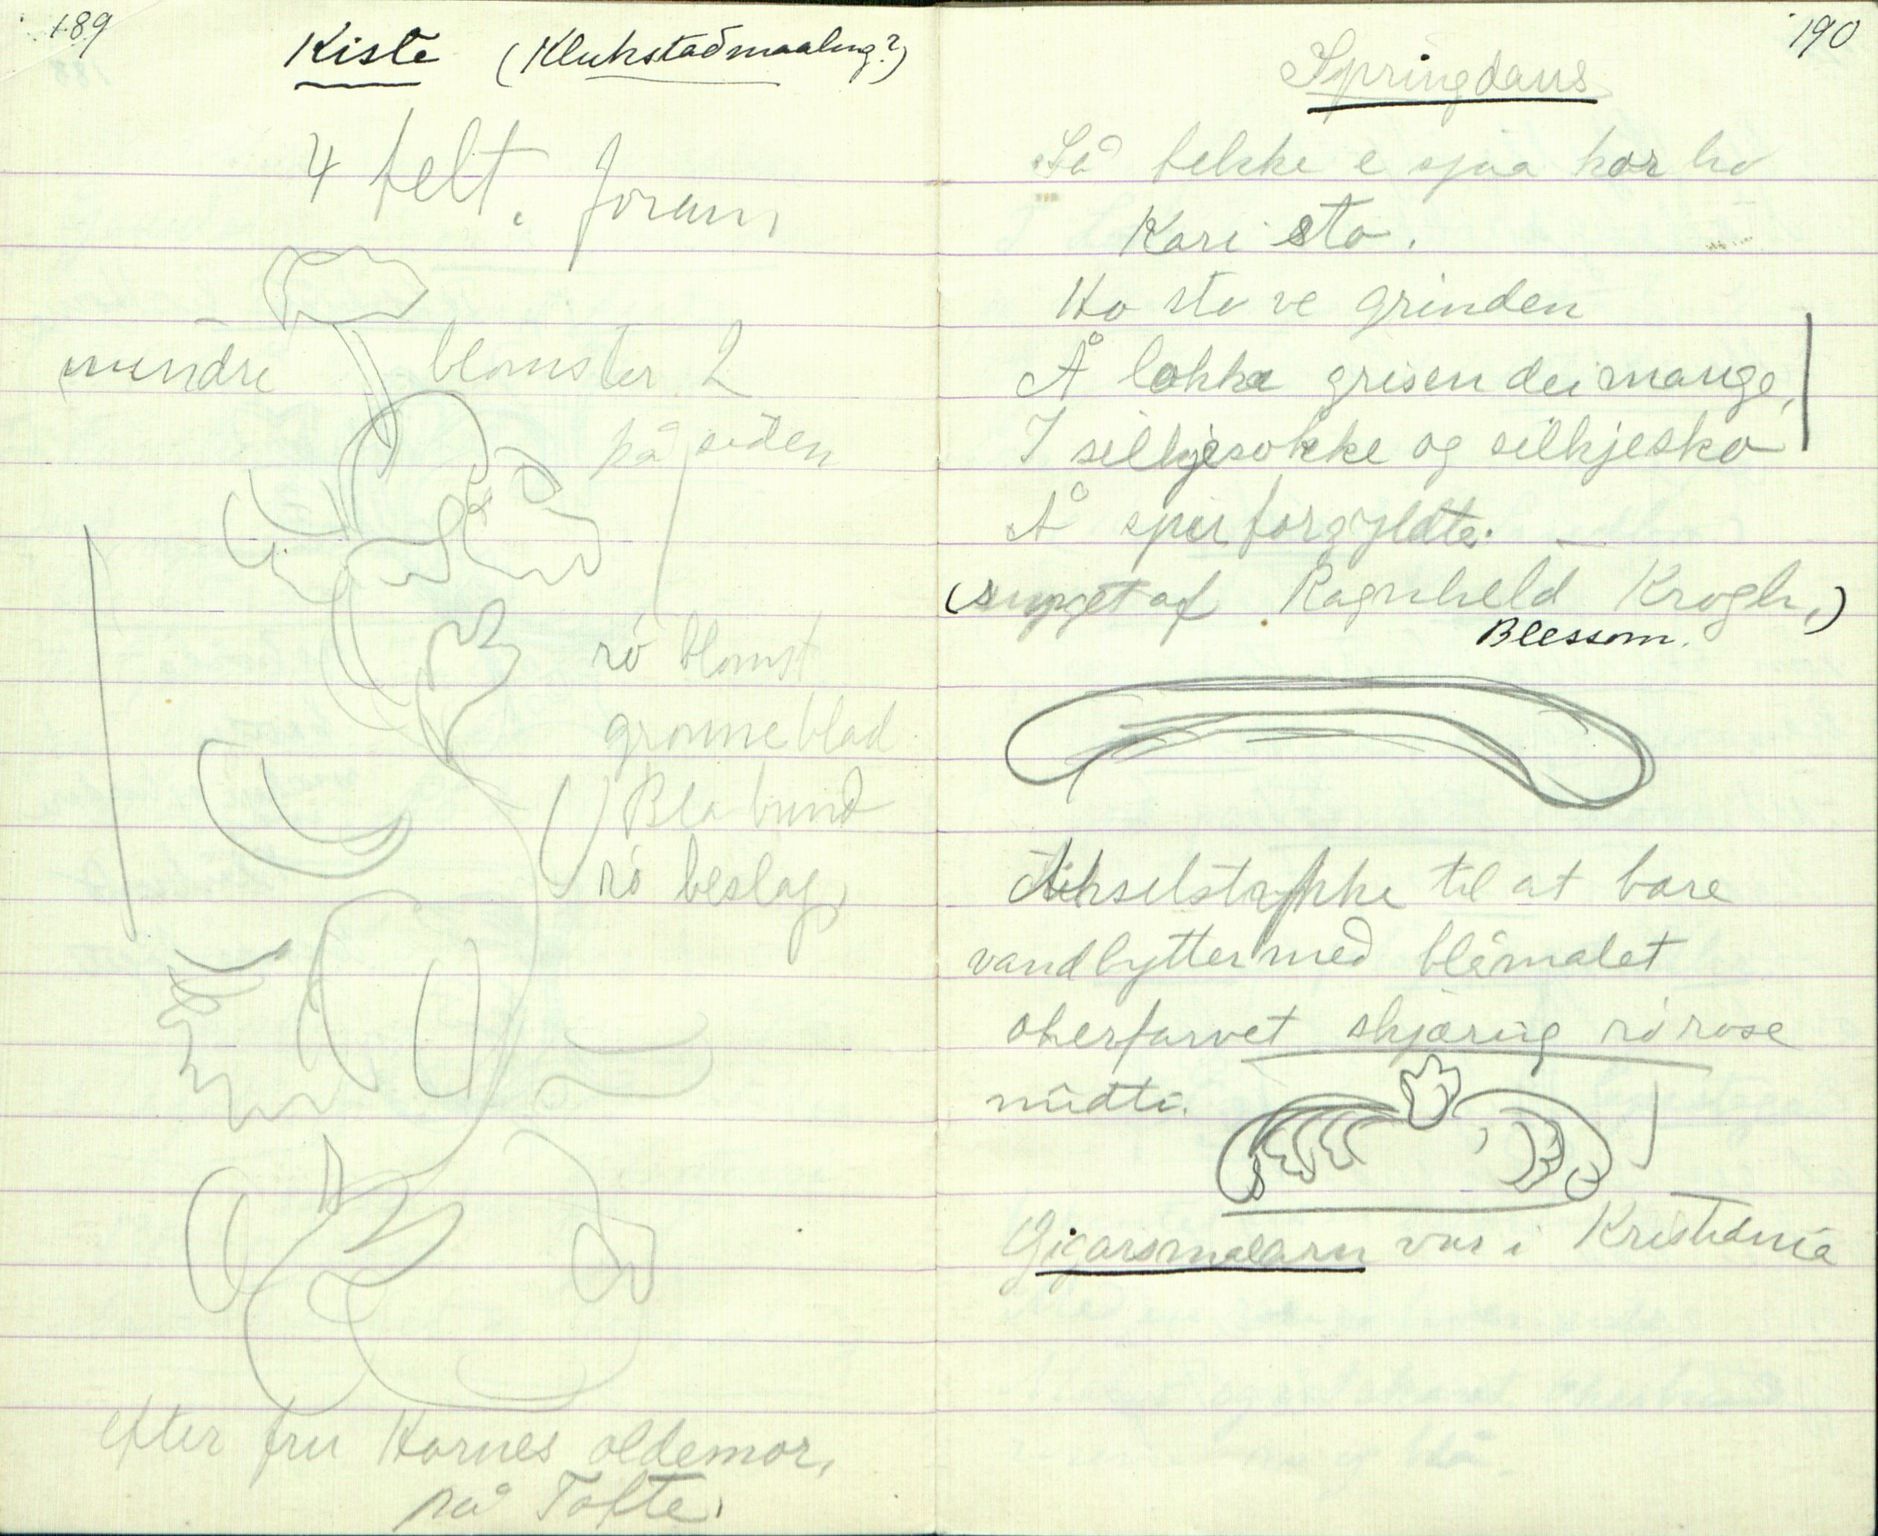 189
Kiste (Klukstadmaaling?)
4 felt. foran,
mindre blomster 2
på siden
rö blomst
grønne blad
Blå bund
rö beslag,
efter fru Hornes oldemor,
på Tofte.
190
Springdans
Så fekke e sjaa hor ho
Kari sto.
Ho sto ve grinden
Å lokka grisen dei mange,
I silkjesokke og silkjesko
Å spir forgyldte.
(sunget af Ragnhild Krogh,)
Blessom.
Akselstykke til at bære
vandbytter med blåmalet
okerfarvet skjæring rö rose
midti.
Gigarsmalarn var i Kristiania